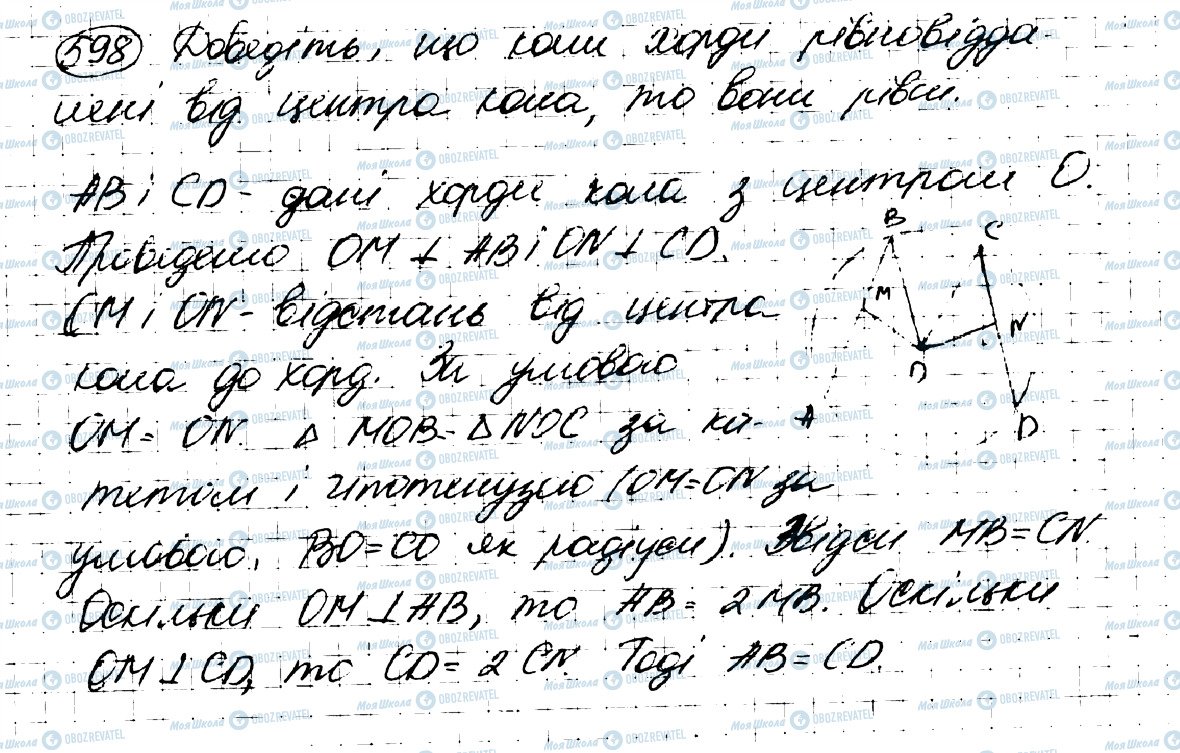 598 Доведіть, що коли хорди рівновідда-
лені від центра кола, то вони рівні.
AB і CD - дані хорди кола з центром O.
Проведемо OM ⊥ AB і ON ⊥ CD.
OM і ON - відстань від центра
кола до хорд. За умовою
OM = ON. Δ MOB = Δ NOC за ка-
тетом і гіпотенузою (OM = ON за
умовою, BO = CO як радіуси). Звідси MB = CN.
Оскільки OM ⊥ AB, то AB = 2 MB. Оскільки
OM ⊥ CD, то CD = 2 CN. Тоді AB = CD.
B
C
M
N
O
A
D